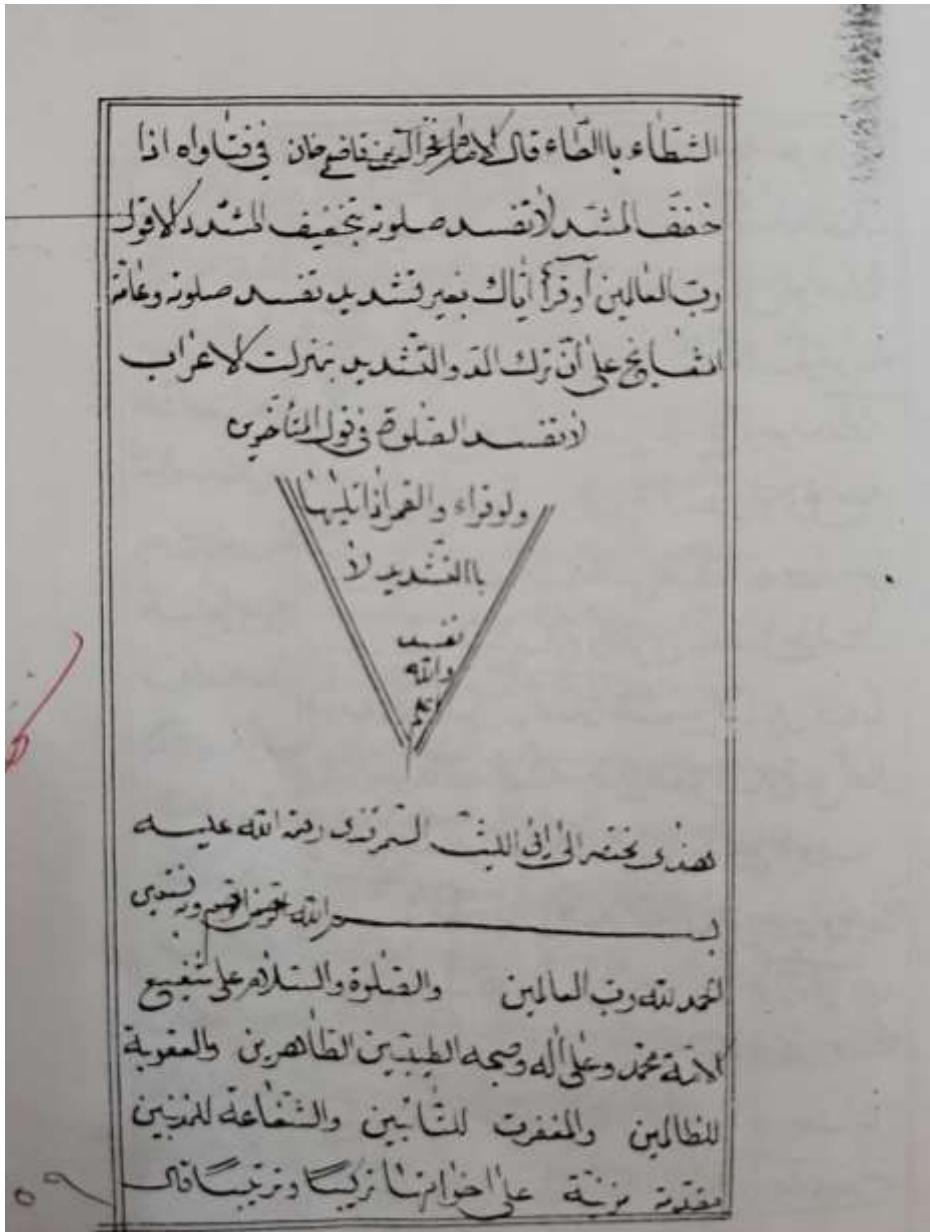 الشطاء باالطاء قال الامام فخر الدين قاضى خان فى فتاواه اذا
خفف المشدد لا تفسد صلوته بتخفيف المشدد الا قول
رب العالمين أو قرأ اياك بغير تشديد تفسد صلوته وعامة
المشايخ على ان ترك المد والتشديد بمنزلت الاعراب
لا تفسد الصلوة فى قول المتأخرين
ولو قراء والقمر اذا تليها
باالتشديد لا
تفسد
والله
اعلم
هذى مختصر الى ابى الليث السمرقندى رحمة الله عليه
بسم الله الرحمن الرحيم وبه نستعين
الحمد لله رب العالمين والصلوة والسلام على شفيع
الامة محمد وعلى اله وصحبه الطيبين الطاهرين والعقوبة
للظالمين والمغفرت للتائبين والشفاعة للمذنبين
مقدمة مزينة على اخواتها تركيبا وترتيبا قال